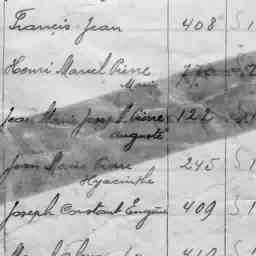 Francis Jean 408 S 1
Henri Marcel Pierre
Marie
Jean Marie Joseph Pierre 122
Auguste
Jean Marie Pierre 245 S 1
Hyacinthe
Joseph Constant Eugène 409 S 1